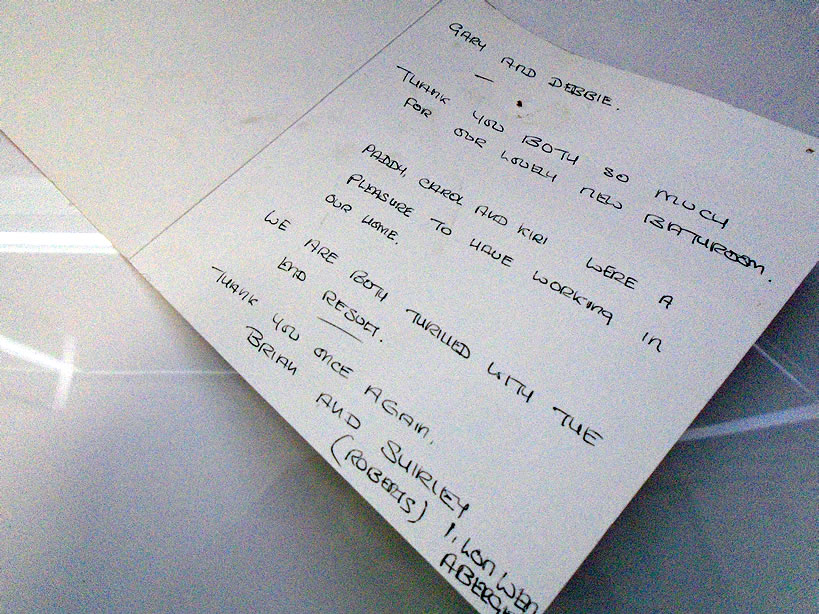 GARY AND DEBBIE.
—
THANK YOU BOTH SO MUCH
FOR OUR LOVELY NEW BATHROOM.
PADDY, CAROL AND KIRI WERE A
PLEASURE TO HAVE WORKING IN
OUR HOME.
WE ARE BOTH THRILLED WITH THE
END RESULT.
THANK YOU ONCE AGAIN.
BRIAN AND SHIRLEY
(ROBERTS) 1, LON WEN